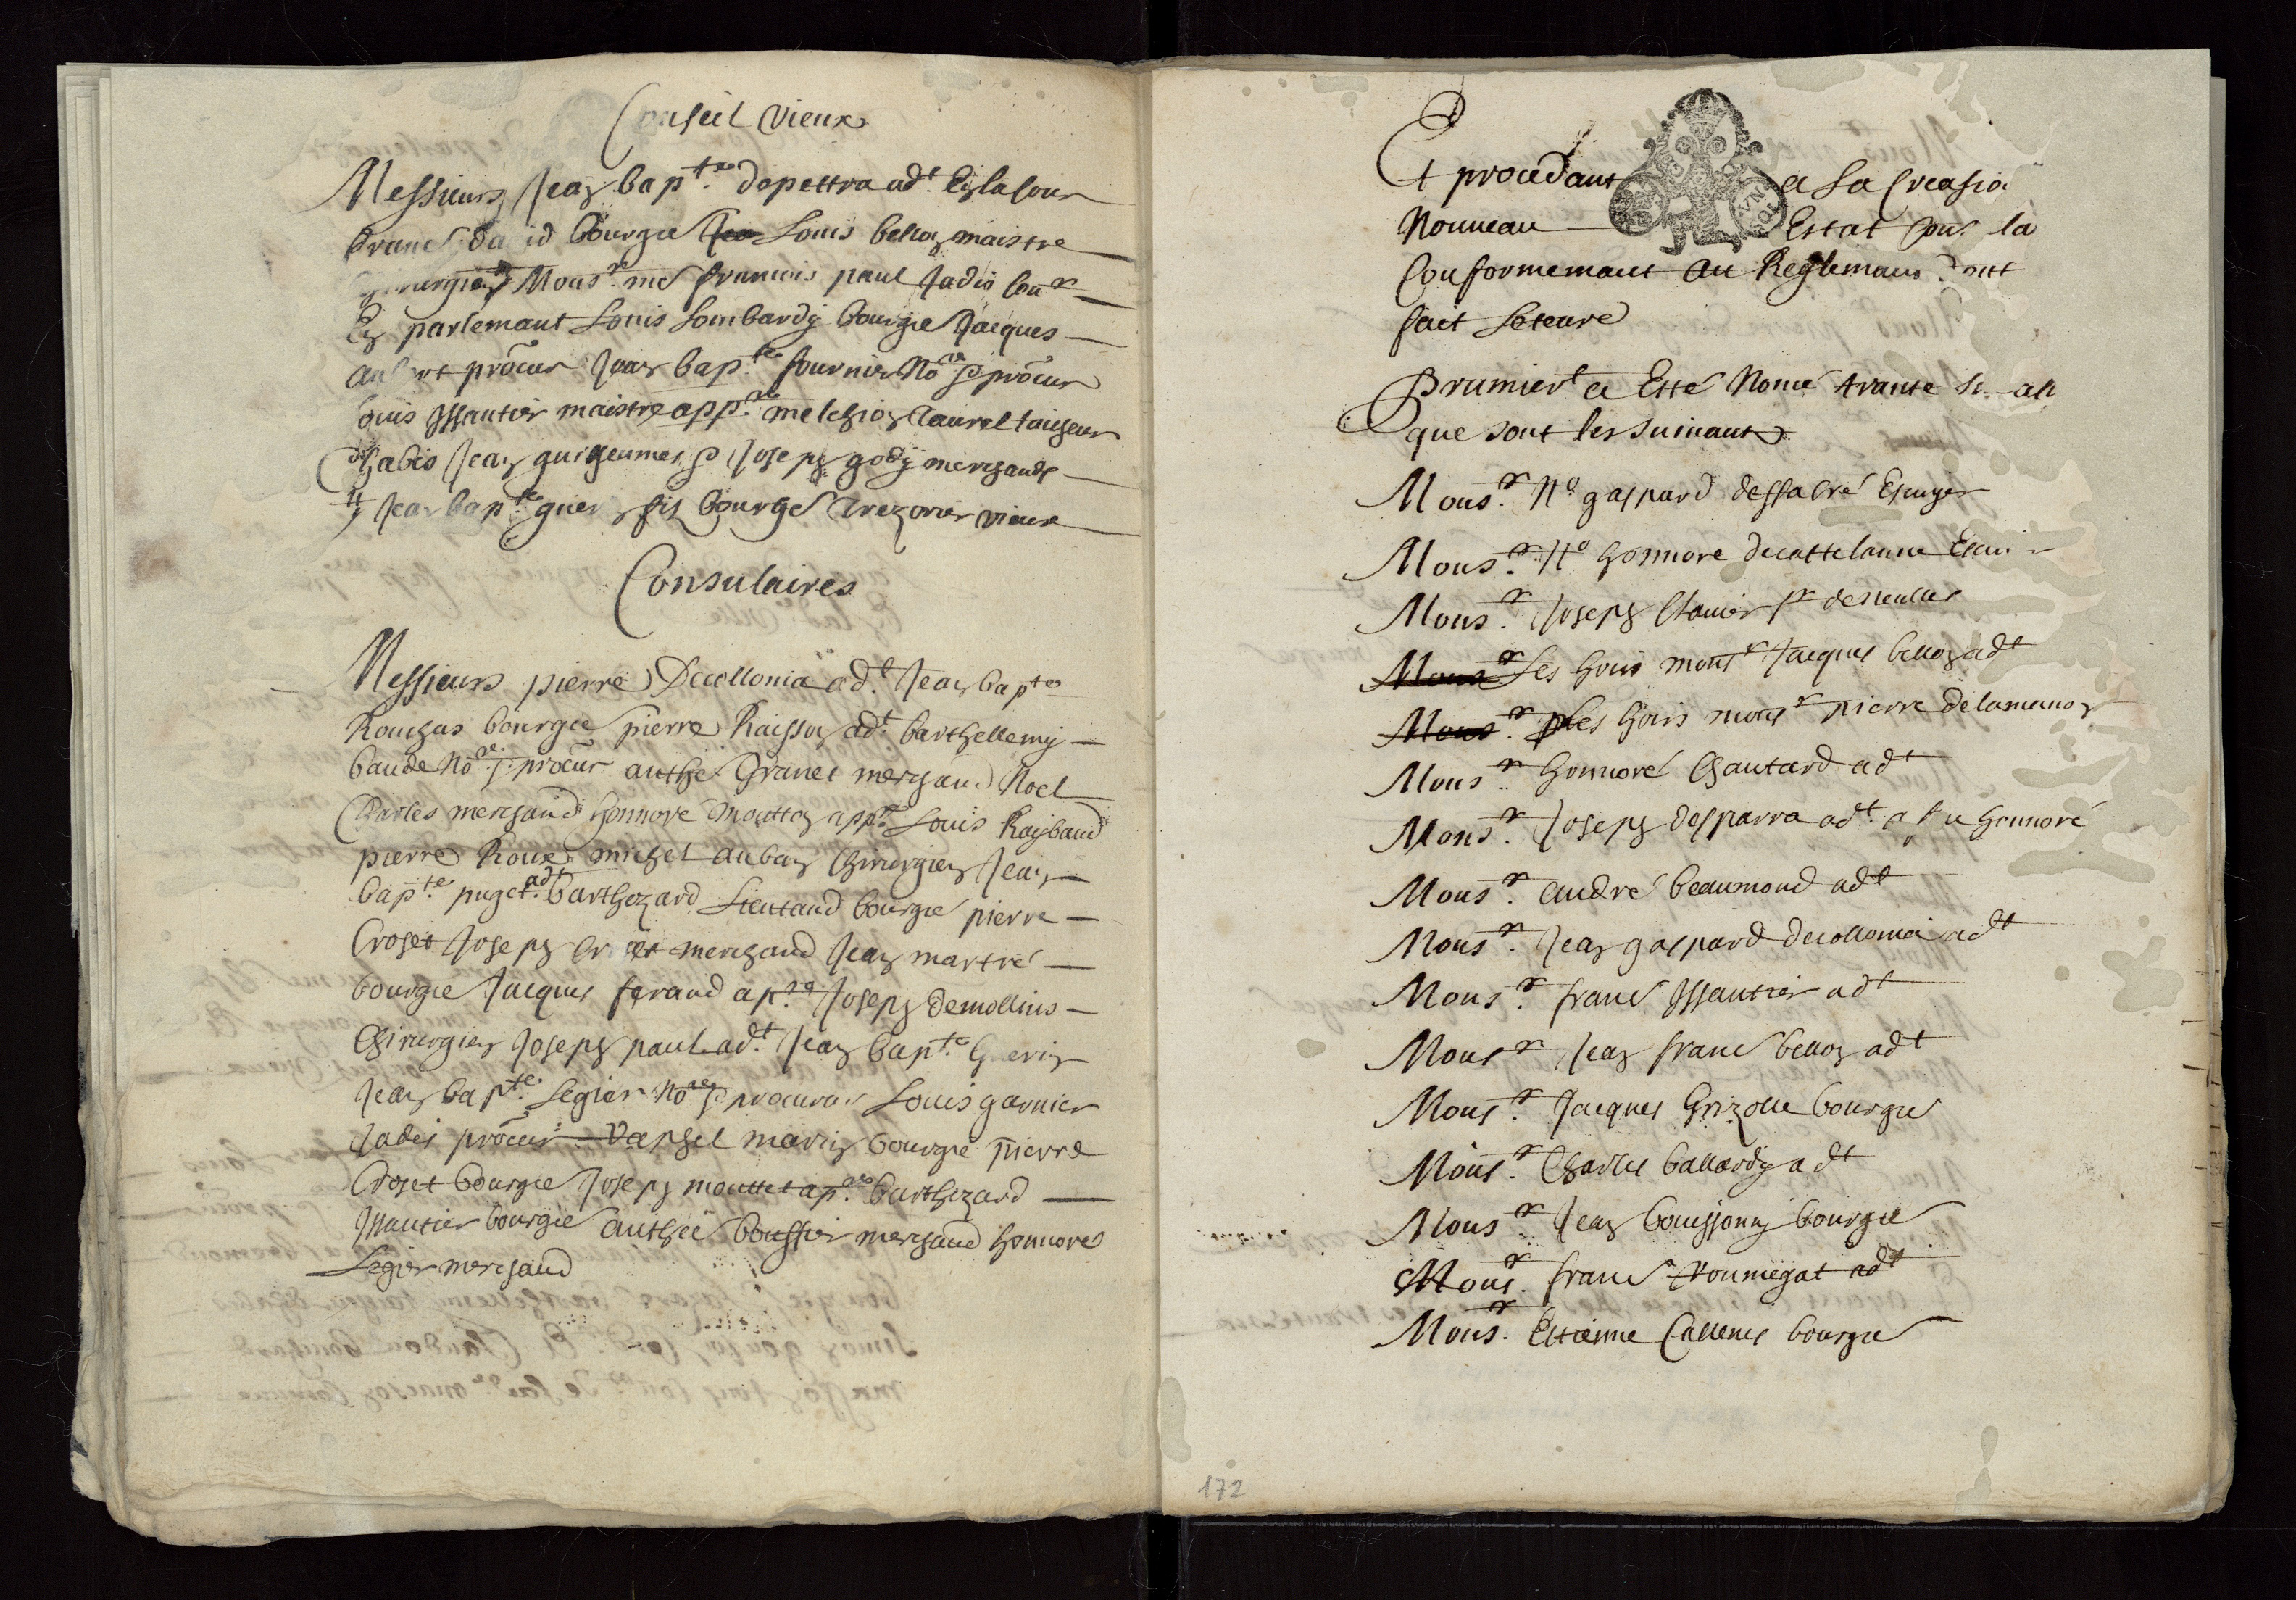 Conseil vieux
Messieurs Jean bap.te depettra adt. En la cour
franc. da id bourgeé Louis bellon maistre
Mons.r me francois paul Jadis con.r
En parlemant Louis Lombardy bourgé Jacques
aubert procur Jean bap.te fournier No.re & procur
Louis Issautier maistre app.re melchion Laurel taigeur
dhabis Jean guigeumes & Joseph godÿ merchands
et Jean bap.te guer fils bourgé trezorier vieux
Consulaires
Messieurs pierre Decollonia adt. Jean bapte
Rouchas bourgée pierre Raisson adt. barthellemÿ
baude No.re & procur anthé Granet merchand Noel
Charles merchand honnoré moutton app.re Louis Raybaud
pierre Roux michel auban Chirurgien Jean
bap.te puget adt. barthezard Lieutaud bourgé pierre
Croset Joseph merchand Jean martré
bourgée Jacques feraud ap.re Joseph demollins
Chirurgien Joseph paul adt. Jean bap.te Guerin
Jean bap.te Legier No.re & procurur Louis garnier
Jadis procur marin bourgé pierre
Croset bourgée Joseph mouttet ap.re barthezard
Issautier bourgée anthée boussier merchand honnoré
Legier merchand
Et procedant a la Creasion
Nouveau Estat pour la
Conformemant au Reglemans dont
fait Leteure
Prumiert a Esté Nomé trante
que sont les suivants
Mons.r No gaspard dessabré Escuyer
Mons.r No honnore decastelanne Escui
Mons.r Joseph Clavier sr
Mons.r Les hoirs mons.r Jacques bellon adt
Mons.r Les hoirs mons.r pierre delamanon
Mons.r honnoré Chautard adt
Mons.r Joseph desparra adt. a feu honnoré
Mons.r andré beaumond adt
Mons.r Jean gaspard decollonia adt
Mons.r franc Issautier adt
Mons.r Jean franc bellon adt
Mons.r Jacques Grizolle bourgé
Mons.r Charles ballardy adt
Mons.r Jean bouissonny bourgé
Mons.r franc Roumegat adt
Mons.r Estienne Cullenes bourgé
172